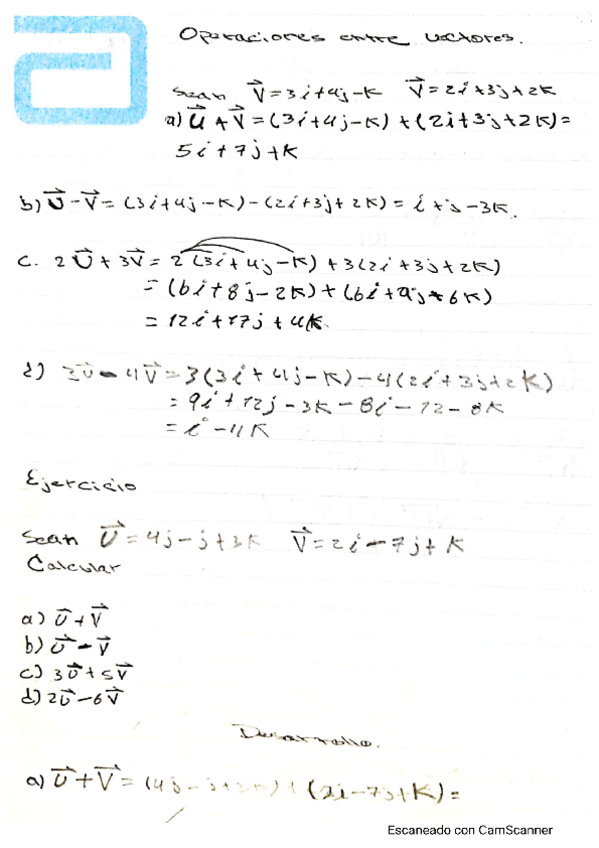 Operaciones entre vectores.
Sean V=3i+4j-K V=2i+3j+2K
a) U+V=(3i+4j-K)+(2i+3j+2K)=
5i+7j+K
b) U-V=(3i+4j-K)-(2i+3j+2K)=i+j-3K.
c. 2U+3V=2(3i+4j-K)+3(2i+3j+2K)
=(6i+8j-2K)+(6i+9j+6K)
=12i+17j+4K
d) 3U-4V=3(3i+4j-K)-4(2i+3j+2K)
=9i+12j-3K-8i-12-8K
=i-11K
Ejercicio
Sean U=4j-j+3K V=2i-7j+K
Calcular
a) U+V
b) U-V
c) 3U+5V
d) 2U-6V
Desarrollo.
a) U+V=(4j-j+3K)+(2i-7j+K)=
Escaneado con CamScanner